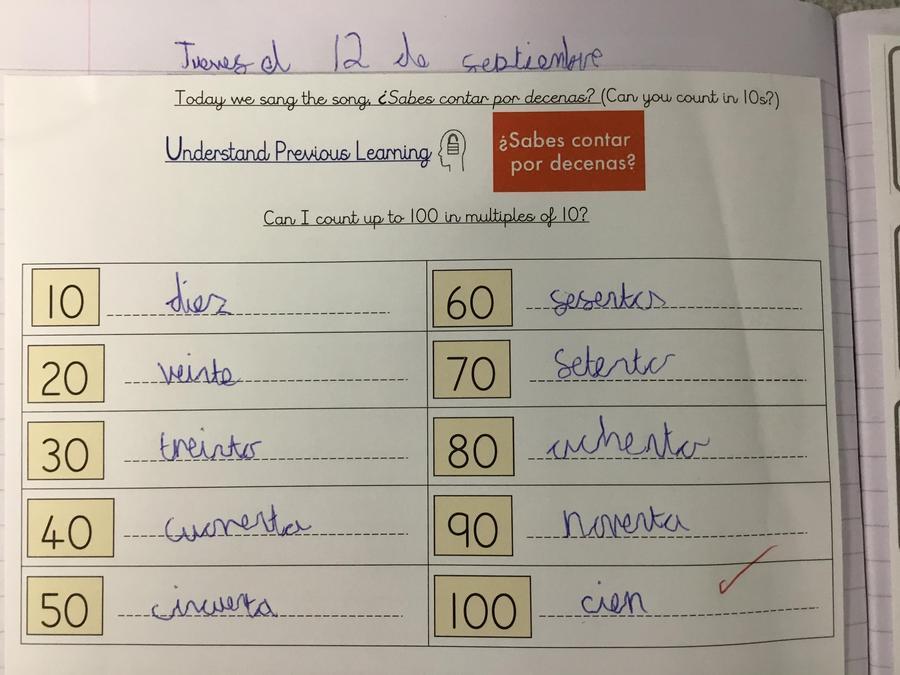 Jueves d 12 de septiembre
Today we sang the song, ¿Sabes contar por decenas? (Can you count in 10s?)
Understand Previous Learning
¿Sabes contar
por decenas?
Can I count up to 100 in multiples of 10?
10 diez
60 sesenta
20 veinte
70 Setenta
30 treinta
80 ochenta
40 cuarenta
90 noventa
50 cincuenta
100 cien